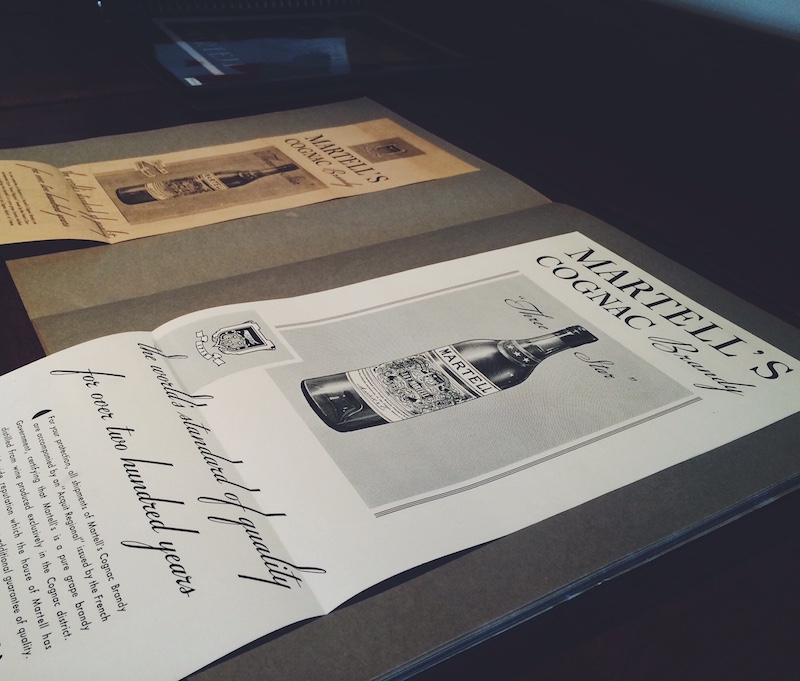 MARTELL'S
COGNAC Brandy
"Three Star"
MARTELL
the world's standard of quality
for over two hundred years
For your protection, all shipments of Martell's Cognac Brandy
are accompanied by an "Acquit Regional" issued by the French
Government, certifying that Martell's is a pure grape brandy
distilled from wine produced exclusively in the Cognac district.
reputation which the house of Martell has
additional guarantee of quality.
MARTELL'S
COGNAC Brandy
MARTELL
the world's standard of quality
for over two hundred years